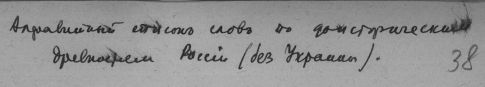 Алфавитный список словъ по доисторическимъ
древностям Россіи (без Украины).
38